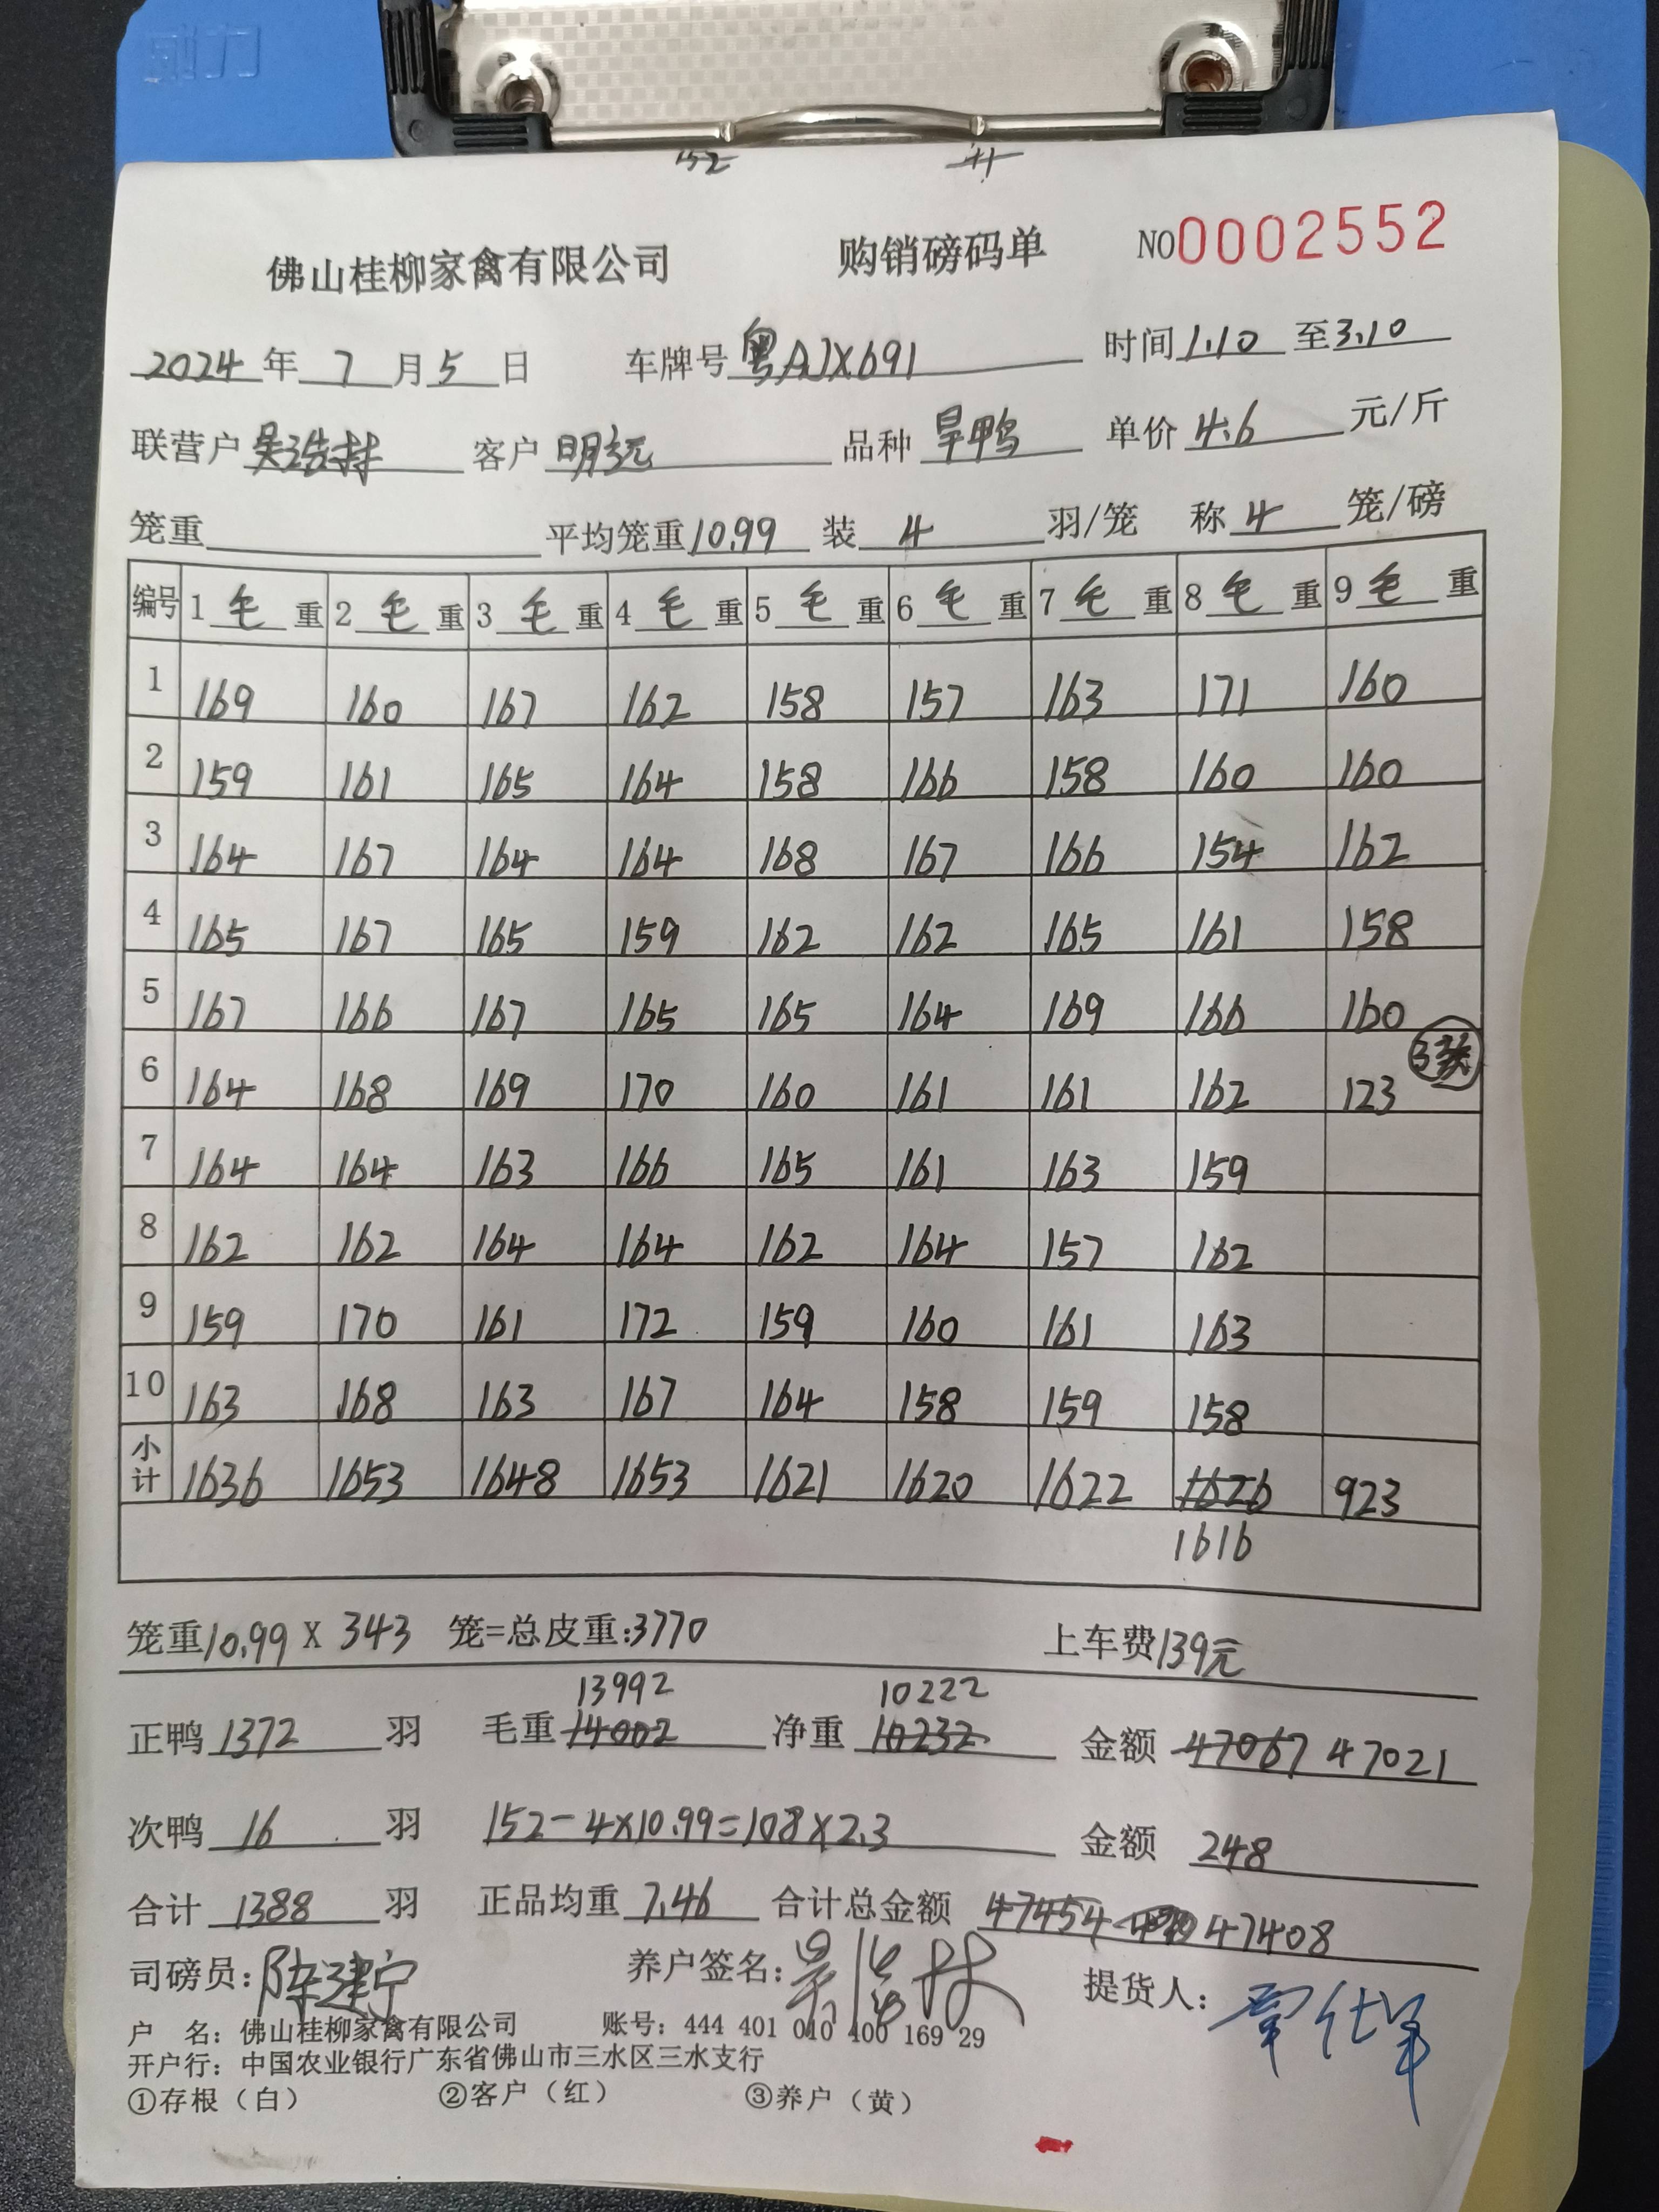 152
佛山桂柳家禽有限公司 购销磅码单 NO0002552
2024年7月5日 车牌号粤AJX691 时间1.10至3.10
联营户吴浩林 客户明远 品种旱鸭 单价4.6元/斤
笼重 平均笼重10.99 装4羽/笼 称4笼/磅
编号 1毛重 2毛重 3毛重 4毛重 5毛重 6毛重 7毛重 8毛重 9毛重
1 169 160 167 162 158 157 163 171 160
2 159 161 165 164 158 166 158 160 160
3 164 167 164 164 168 167 166 154 162
4 165 167 165 159 162 162 165 161 158
5 167 166 167 165 165 164 169 166 160
6 164 168 169 170 160 161 161 162 123 3笼
7 164 164 163 166 165 161 163 159
8 162 162 164 164 162 164 157 162
9 159 170 161 172 159 160 161 163
10 163 168 163 167 164 158 159 158
小计 1636 1653 1648 1653 1621 1620 1622 1626 923
1616
笼重10.99X343笼=总皮重:3770 上车费139元
13992 10222
正鸭1372羽 毛重14002 净重10232 金额47067 47021
次鸭16羽 152-4×10.99=108×2.3 金额248
合计1388羽 正品均重7.46 合计总金额47454 47408
司磅员:陈建宁 养户签名:吴浩林 提货人:
户 名:佛山桂柳家禽有限公司 账号:444 401 010 400 169 29
开户行:中国农业银行广东省佛山市三水区三水支行
①存根(白) ②客户(红) ③养户(黄)